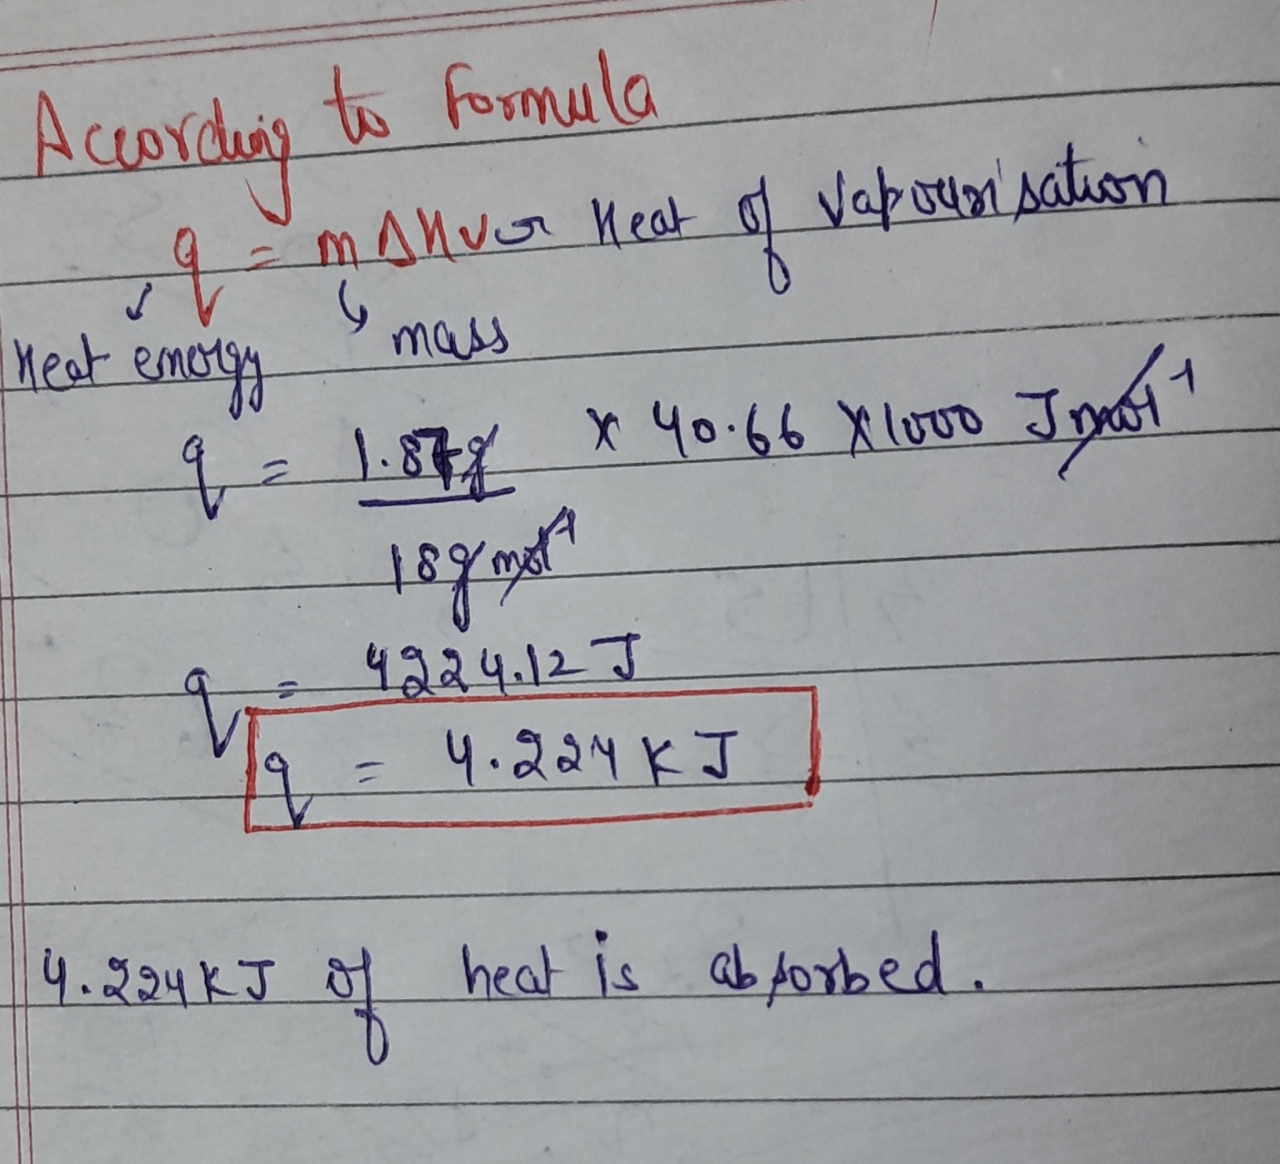 According to Formula
q = m ΔHv or Heat of Vapourisation
Heat energy mass
q = 1.87g × 40.66 × 1000 J mol⁻¹
18 g mol⁻¹
q = 4224.12 J
q = 4.224 KJ
4.224 KJ of heat is absorbed.